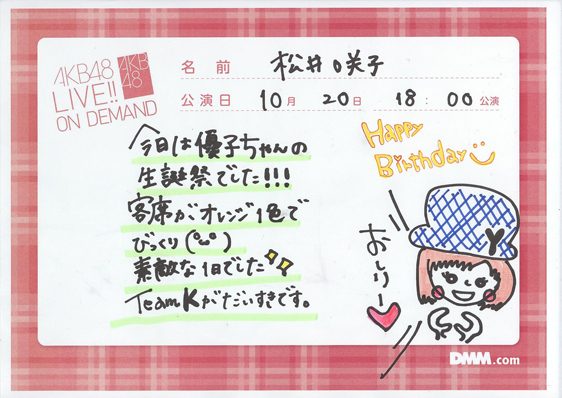 AKB48
LIVE!!
ON DEMAND
AKB
48
名前 松井咲子
公演日 10月 20日 18:00 公演
今日は優子ちゃんの
生誕祭でした!!!
客席がオレンジ1色で
びっくり(°ω°)
素敵な1日でした
Team Kがだいすきです。
Happy
Birthday
おしりー
Y
DMM.com